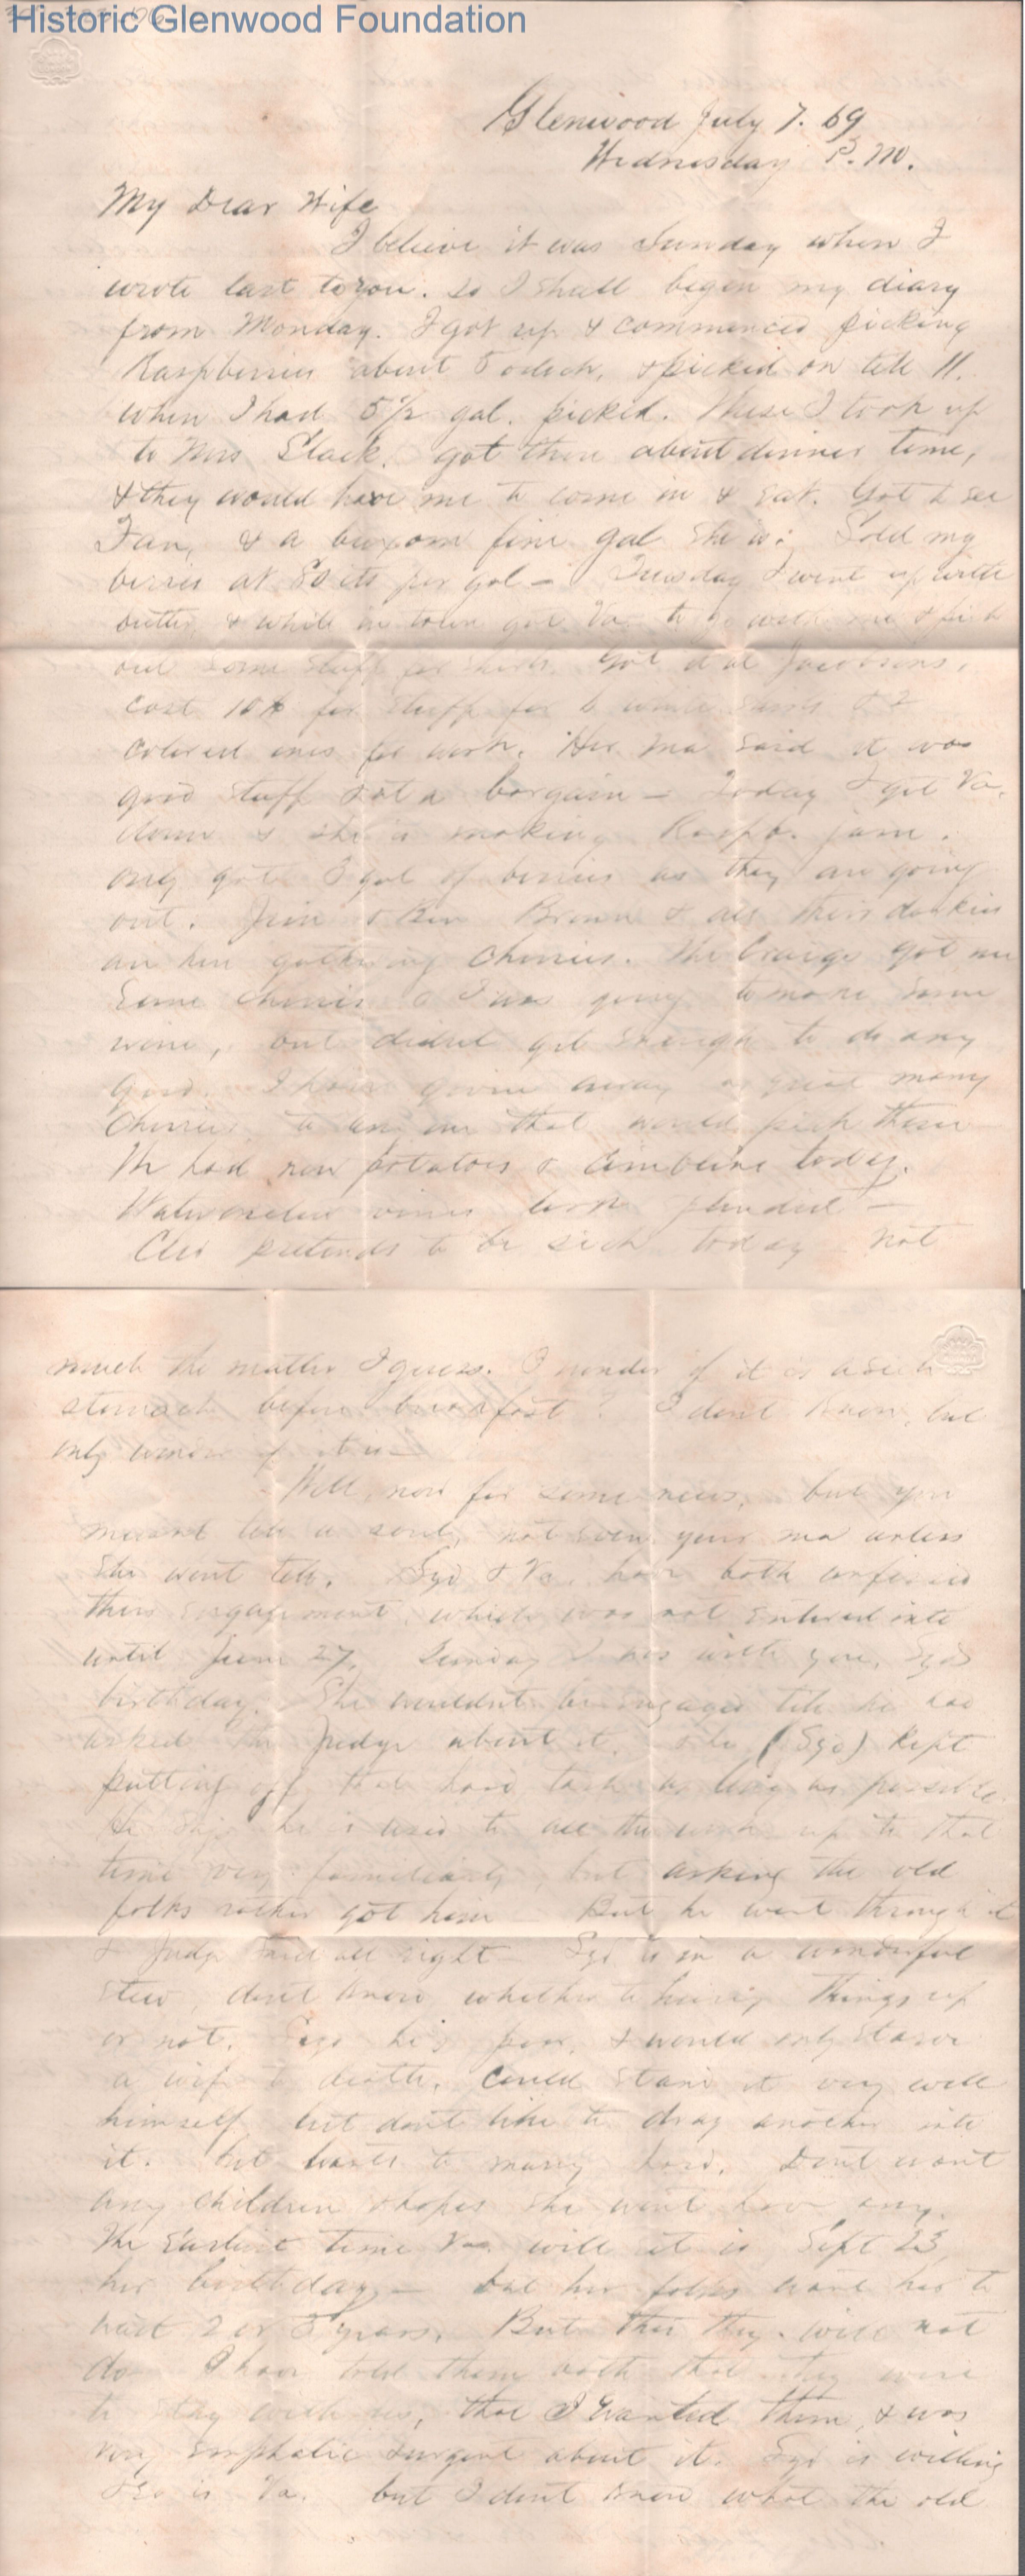 Historic Glenwood Foundation
Glenwood July 7. 69
Wednesday P.M.
My Dear Wife
I believe it was Sunday when I
wrote last to you. so I shall begin my diary
from Monday. I got up & commenced picking
Raspberries about 5 oclock, & picked on till 11.
when I had 5½ gal. picked. These I took up
to Mrs Slack. got there about dinner time,
& they would have me to come in & eat. Got to see
Fan, & a buxom fine gal she is. Sold my
berries at 80 cts per gal — Tuesday I went up with
butter & while in town got Va to go with me & pick
out some stuff for shirts. Got it at Jacobsons,
cost 10$ for stuff for 6 white shirts & 2
colored ones for work. Her ma said it was
good stuff & at a bargain — Today I got Va.
down & she is making Raspb. jam.
only got 3 gal of berries as they are going
out. Jim & Ben Brown & all their darkies
are here gathering Cherries. The Craigs got me
some cherries & I was going to make some
wine, but didnt get enough to do any
good. I have given away a great many
Cherries, to any one that would pick them
We had new potatoes & Cimbeline today.
Watermelon vines look splendid —
Cleo pretends to be sick today not
much the matter I guess. I wonder if it is a sick
stomach before breakfast? I dont know, but
only wonder if it is —
Well, now for some news, but you
musnt tell a soul, not even your ma unless
she wont tell. Syd & Va. have both confessed
their engagement, which was not entered into
until June 27. Sunday I was with you, Syds
birthday. She wouldnt be engaged till he had
asked the Judge about it, & he (Syd) kept
putting off that hard task as long as possible.
He says he is used to all the work up to that
time very familiarly, but asking the old
folks rather got him — But he went through it
& Judge said all right — Syd is in a wonderful
stew, dont know whether to hurry things up
or not. Says he's poor, & would only starve
a wife to death. Could stand it very well
himself, but dont like to drag another into
it. but wants to marry bad. Dont want
any children & hopes she wont have any.
The Earliest time Va. will set is Sept 23,
her birthday — but her folks want her to
wait 2 or 3 years. But this they will not
do I have told them both that they were
to stay with us, that I wanted them, & was
very emphatic & urgent about it. Syd is willing
& so is Va. but I dont know what the old